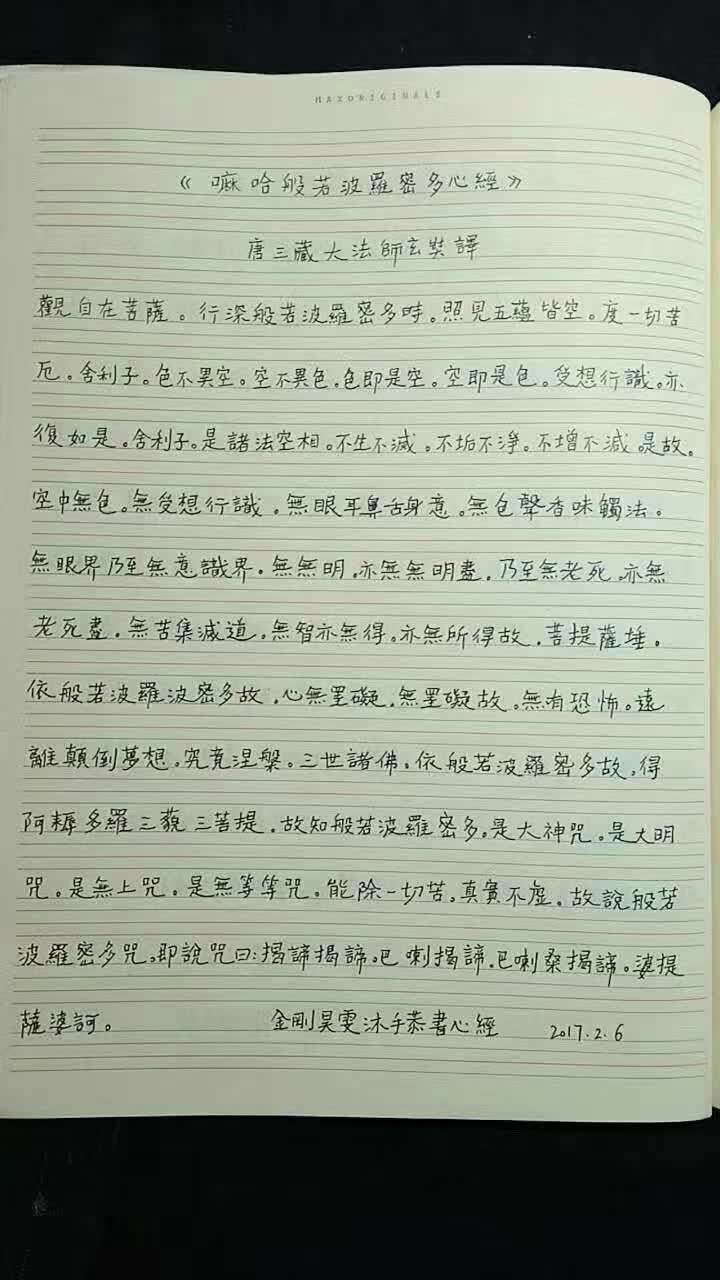 MAXORIGINALS
《嘛哈般若波羅密多心經》
唐三藏大法師玄奘譯
觀自在菩薩。行深般若波羅密多時。照見五蘊皆空。度一切苦
厄。舍利子。色不異空。空不異色。色即是空。空即是色。受想行識。亦
復如是。舍利子。是諸法空相。不生不滅。不垢不淨。不增不減。是故。
空中無色。無受想行識。無眼耳鼻舌身意。無色聲香味觸法。
無眼界乃至無意識界。無無明。亦無無明盡。乃至無老死。亦無
老死盡。無苦集滅道。無智亦無得。亦無所得故。菩提薩埵。
依般若波羅波密多故。心無罣礙。無罣礙故。無有恐怖。遠
離顛倒夢想。究竟涅槃。三世諸佛。依般若波羅密多故,得
阿耨多羅三藐三菩提。故知般若波羅密多。是大神咒。是大明
咒。是無上咒。是無等等咒。能除一切苦。真實不虛。故說般若
波羅密多咒。即說咒曰:揭諦揭諦。巴喇揭諦。巴喇桑揭諦。婆提
薩婆訶。 金剛昊雯沐手恭書心經 2017.2.6